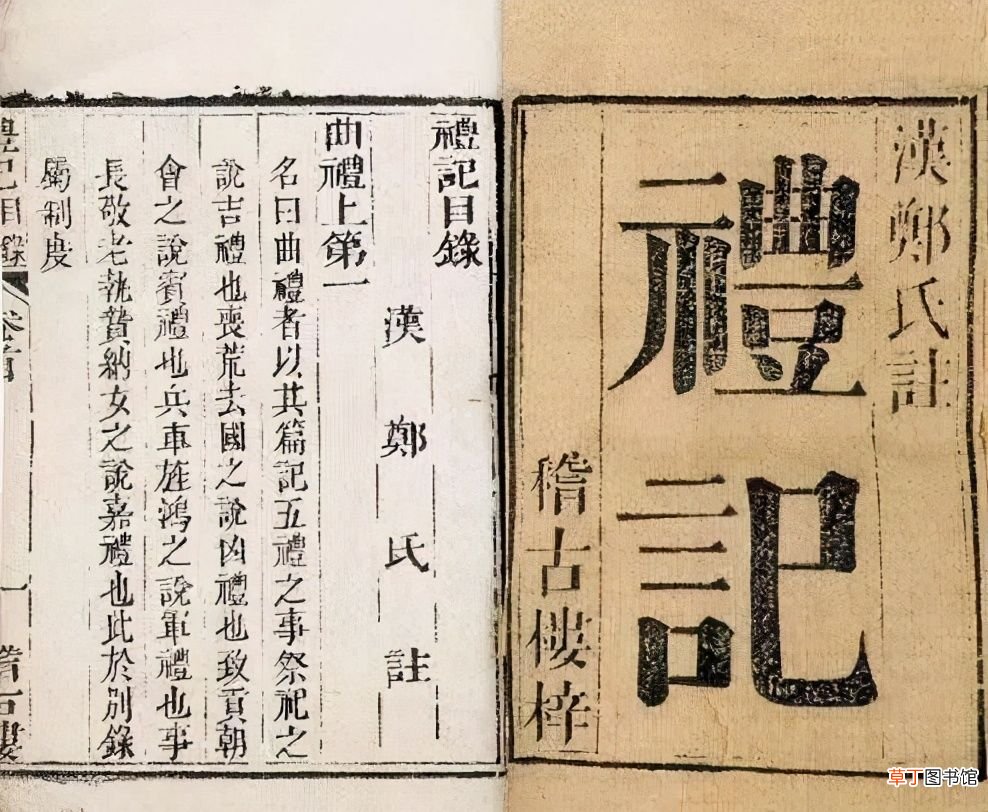 漢鄭氏註
禮記
稽古樓梓
禮記目錄
漢鄭氏註
曲禮上第一
名曰曲禮者以其篇記五禮之事祭祀之
說吉禮也喪荒去國之說凶禮也致貢朝
會之說賓禮也兵車旌鴻之說軍禮也事
長敬老執贄納女之說嘉禮也此於別錄
屬制度
禮記目錄
卷首
一
稽古樓
草丁图书馆